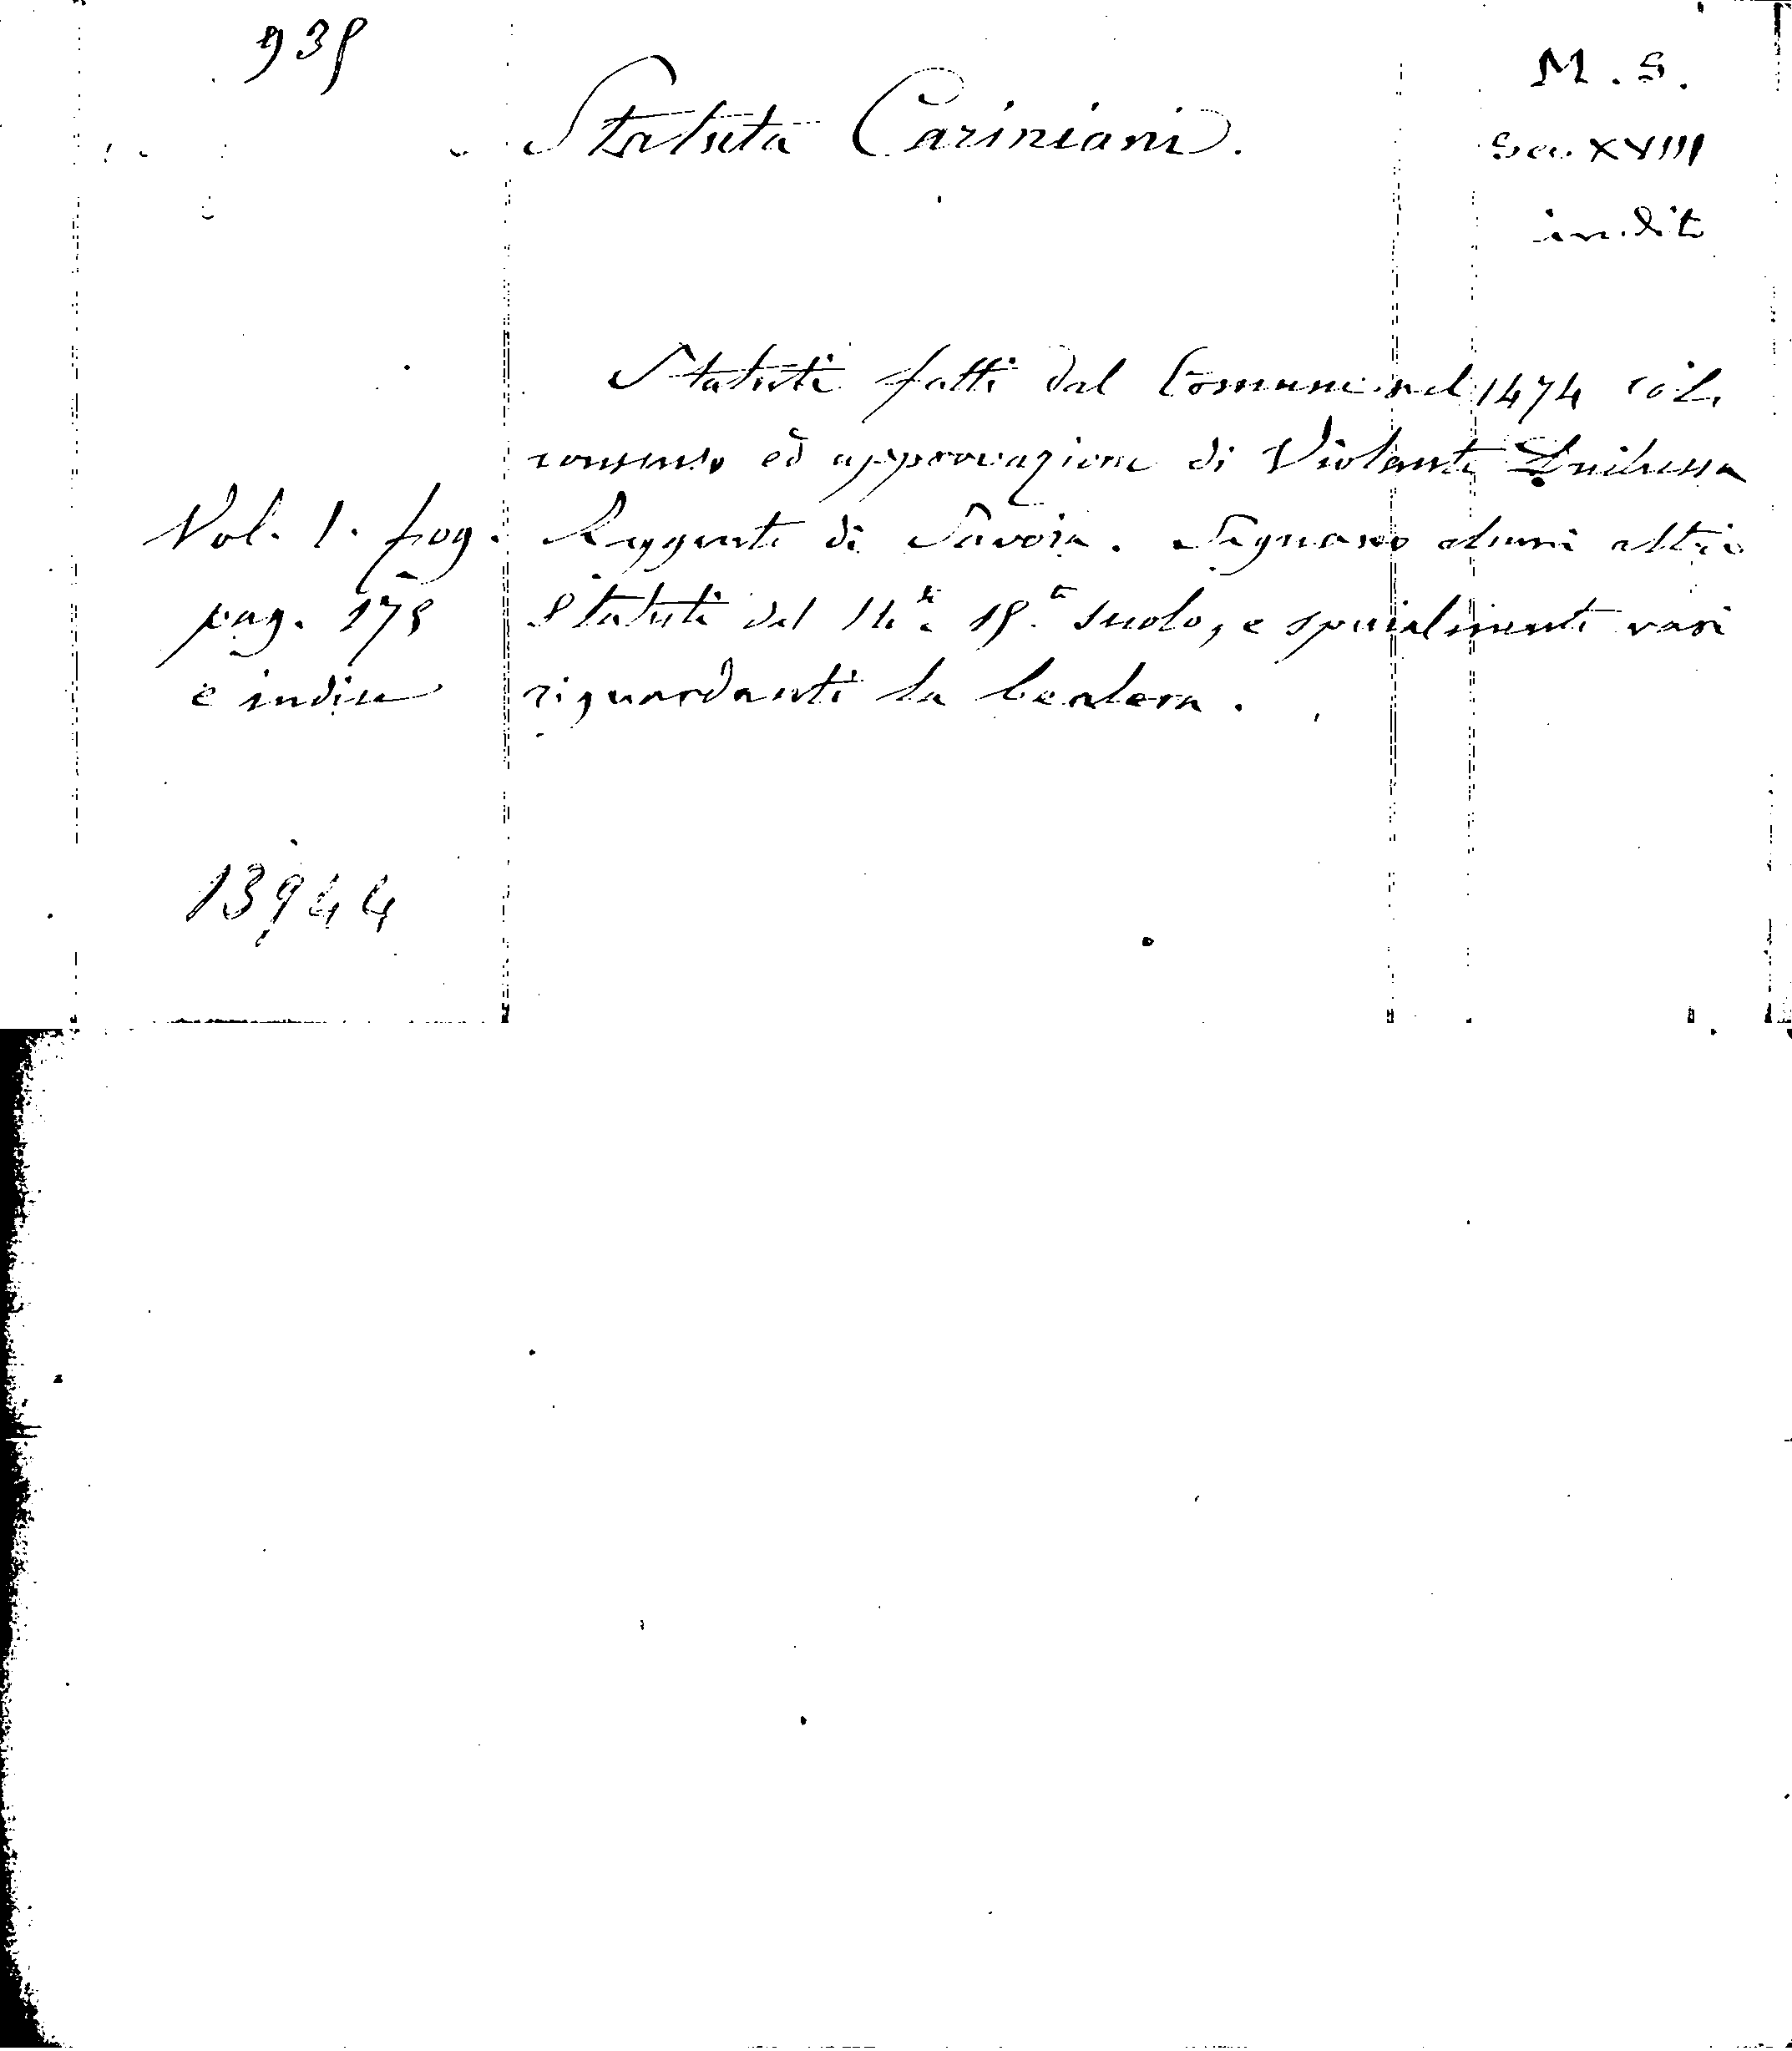 935
Statuta Cariniani.
M. S.
Sec. XVIII
inedit
Statuti fatti dal Comune nel 1474 col
consenso ed approvazione di Violante Duchessa
Reggente di Savoia. Seguono alcuni altri
Statuti del 14.° e 15.° secolo, e specialmente vari
riguardanti la bealera.
Vol. 1. fog.
pag. 175
e indice
13944